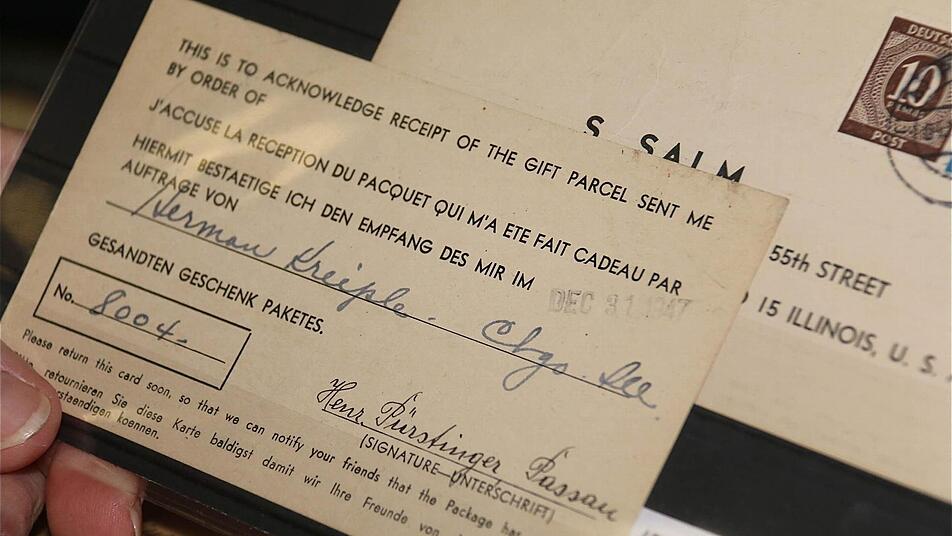 THIS IS TO ACKNOWLEDGE RECEIPT OF THE GIFT PARCEL SENT ME
BY ORDER OF
J'ACCUSE LA RECEPTION DU PACQUET QUI M'A ETE FAIT CADEAU PAR
HIERMIT BESTAETIGE ICH DEN EMPFANG DES MIR IM
AUFTRAGE VON
DEC 31 1947
Herman Krieple. Chgo. Ill.
GESANDTEN GESCHENK PAKETES.
No. 8004.
Henr. Pürstinger Passau
(SIGNATURE-UNTERSCHRIFT)
Please return this card soon, so that we can notify your friends that the Package has
retournieren Sie diese Karte baldigst damit wir Ihre Freunde von
koennen.
S. SALM
55th STREET
15 ILLINOIS, U. S.
10
POST